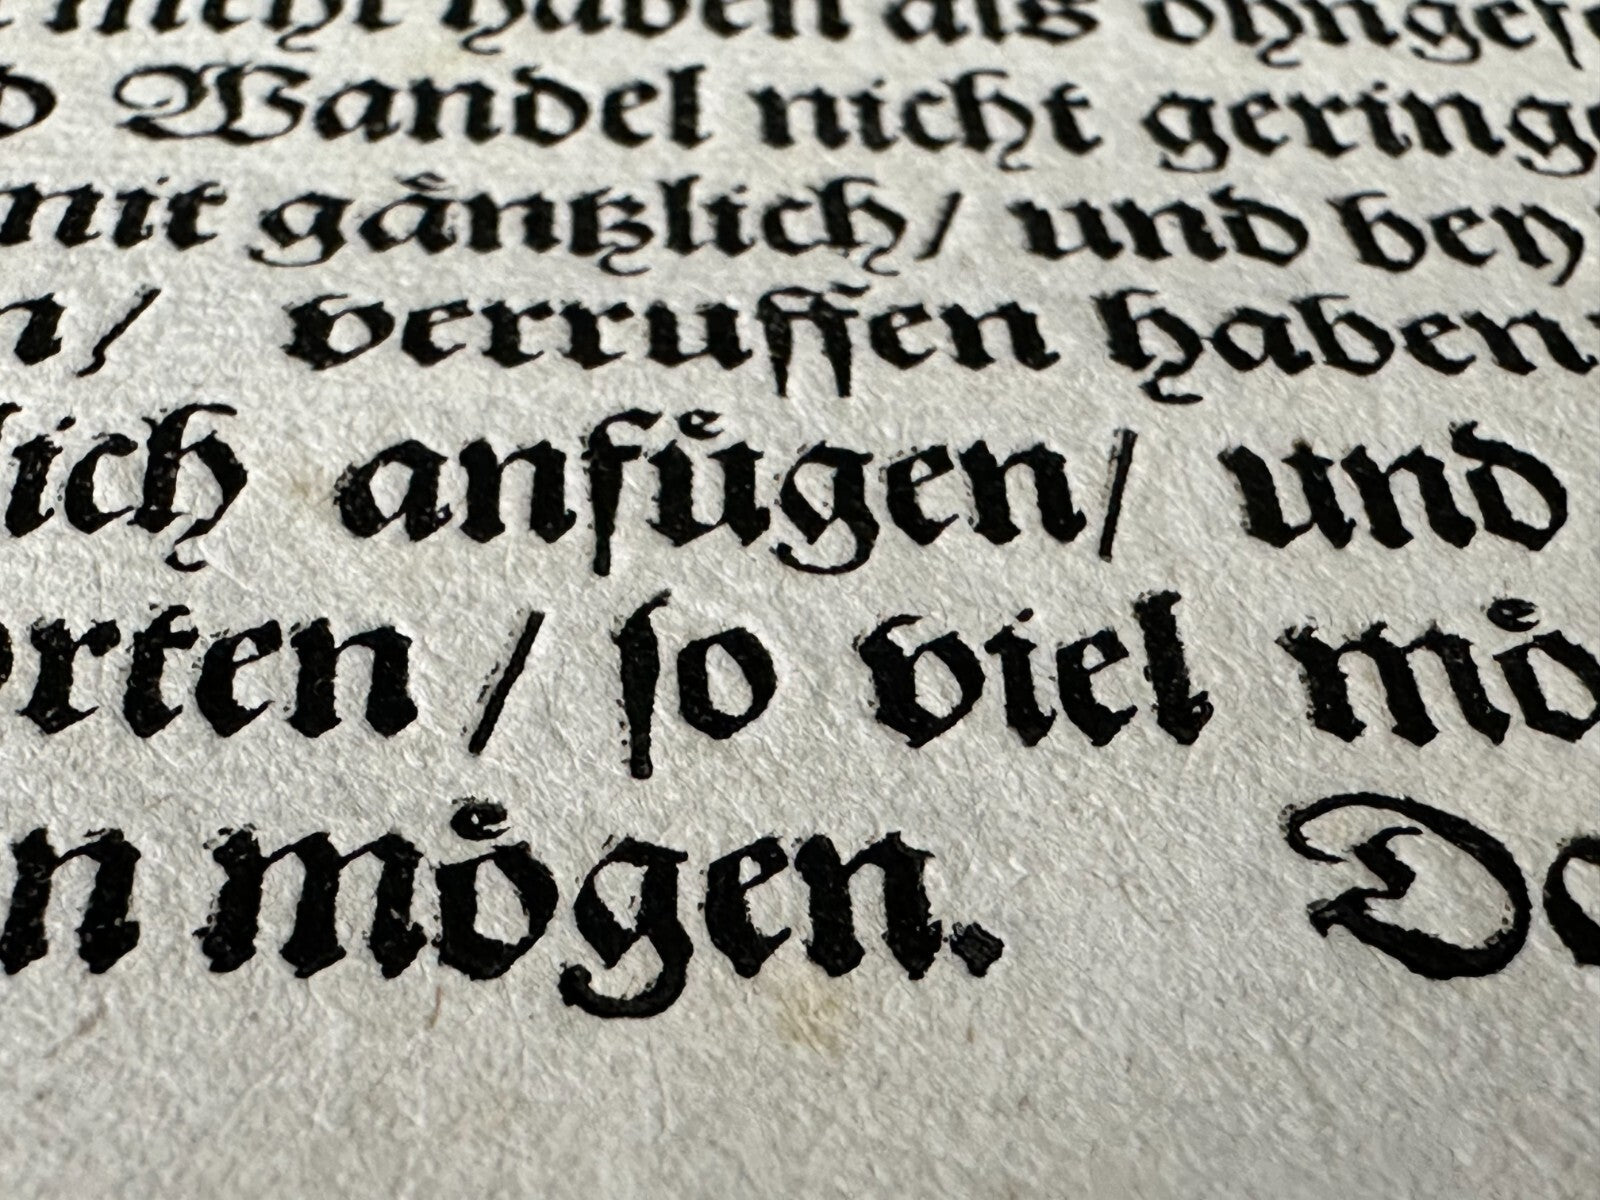 nicht haben als ohngefe
d Wandel nicht geringe
mit gaͤntzlich/ und bey
n/ verruffen haben
lich anfuͤgen/ und
orten / ſo viel moͤ
n moͤgen. Do